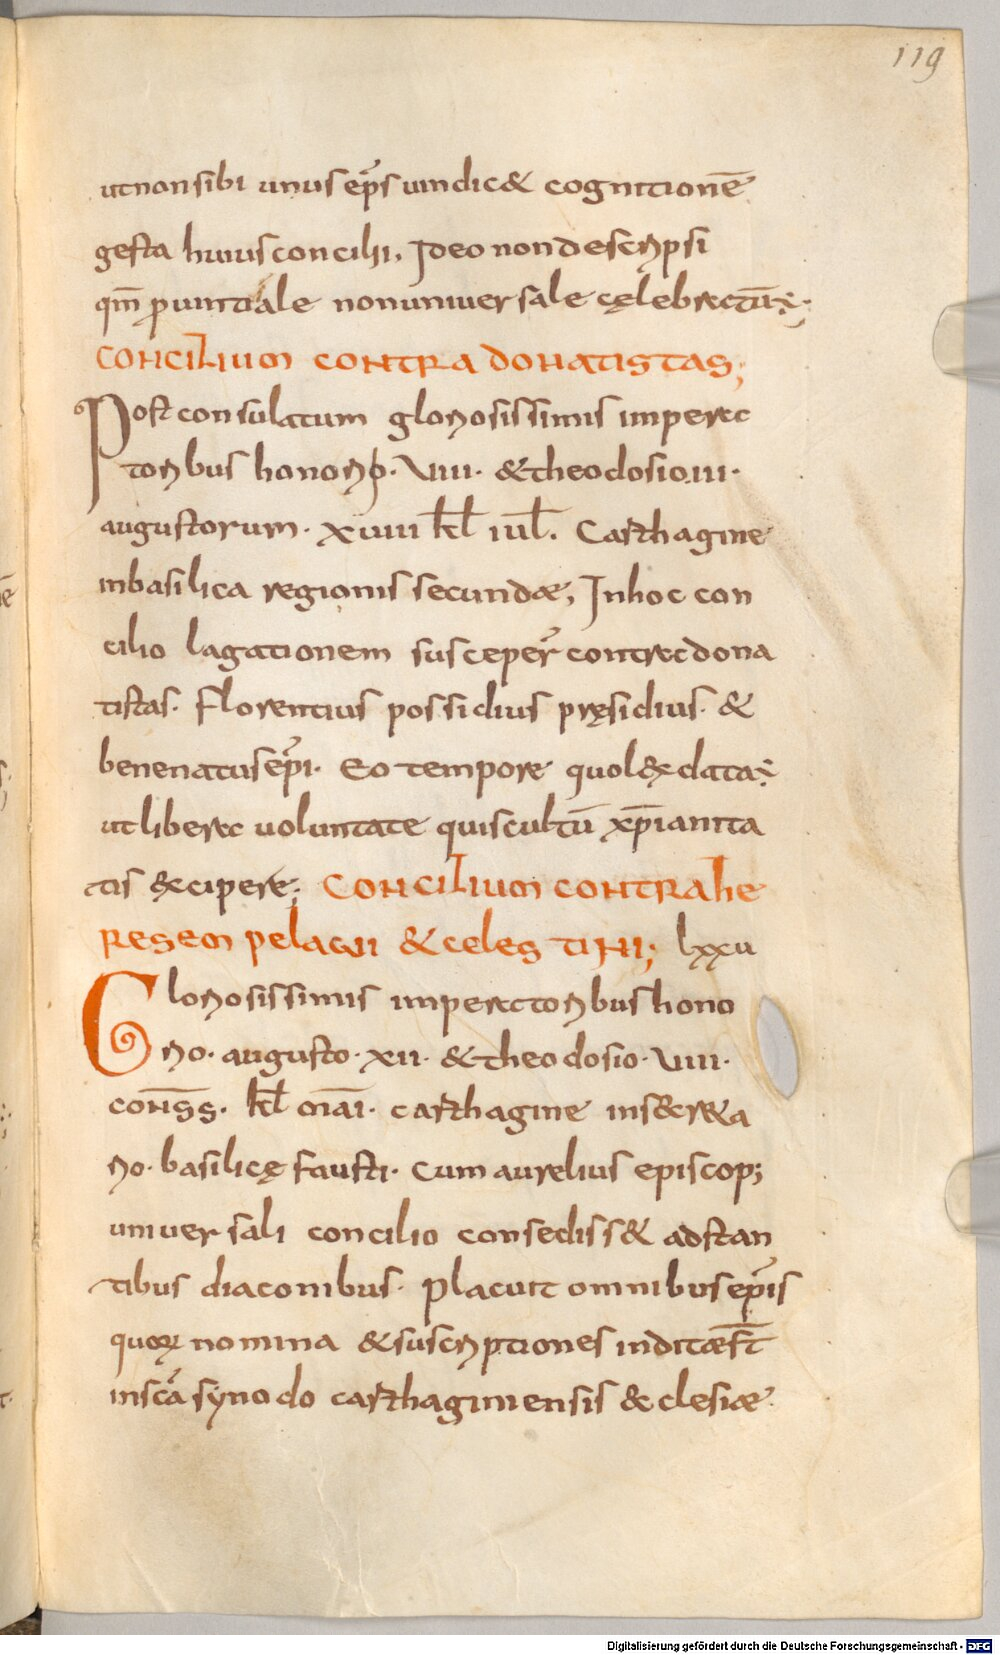 119
utnonsibi unus ep̅s uindic& cognitionē
gesta huius concilii, Ideo non descripsi
qm̅ ꝓuintiale non uniuersale cęlebratū ē;
CONCILIUM CONTRA DONATISTAS;
Post consulatum gloriosissimis impera
toribus honorio. VIIII. & theodosio. III.
augustorum. XVIIII kł iuł. Carthagine
in basilica regionis secundae, In hoc con
cilio lagationem susceper̄ contra dona
tistas. Florentius possidius pręsidius. &
benenatus ep̅i. Eo tempore quo lex data ē
ut libera uoluntate quis cultū xp̅ianita
tis exciperet. CONCILIUM CONTRA HE
RESEM PELAGII & CELESTINI; lxxu
Gloriosissimis imperatoribus hono
rio. augusto. XII. & theodosio. VIII.
CONSS̅. kł mai. carthagine in secreta
rio. basilicę fausti. Cum aurelius episcop;
uniuersali concilio consediss& adstan
tibus diaconibus. Placuit omnibus ep̅is
quorꝝ nomina & suscriptiones indita est
in sc̅a synodo carthaginensis &clesiae.
Digitalisierung gefördert durch die Deutsche Forschungsgemeinschaft - DFG